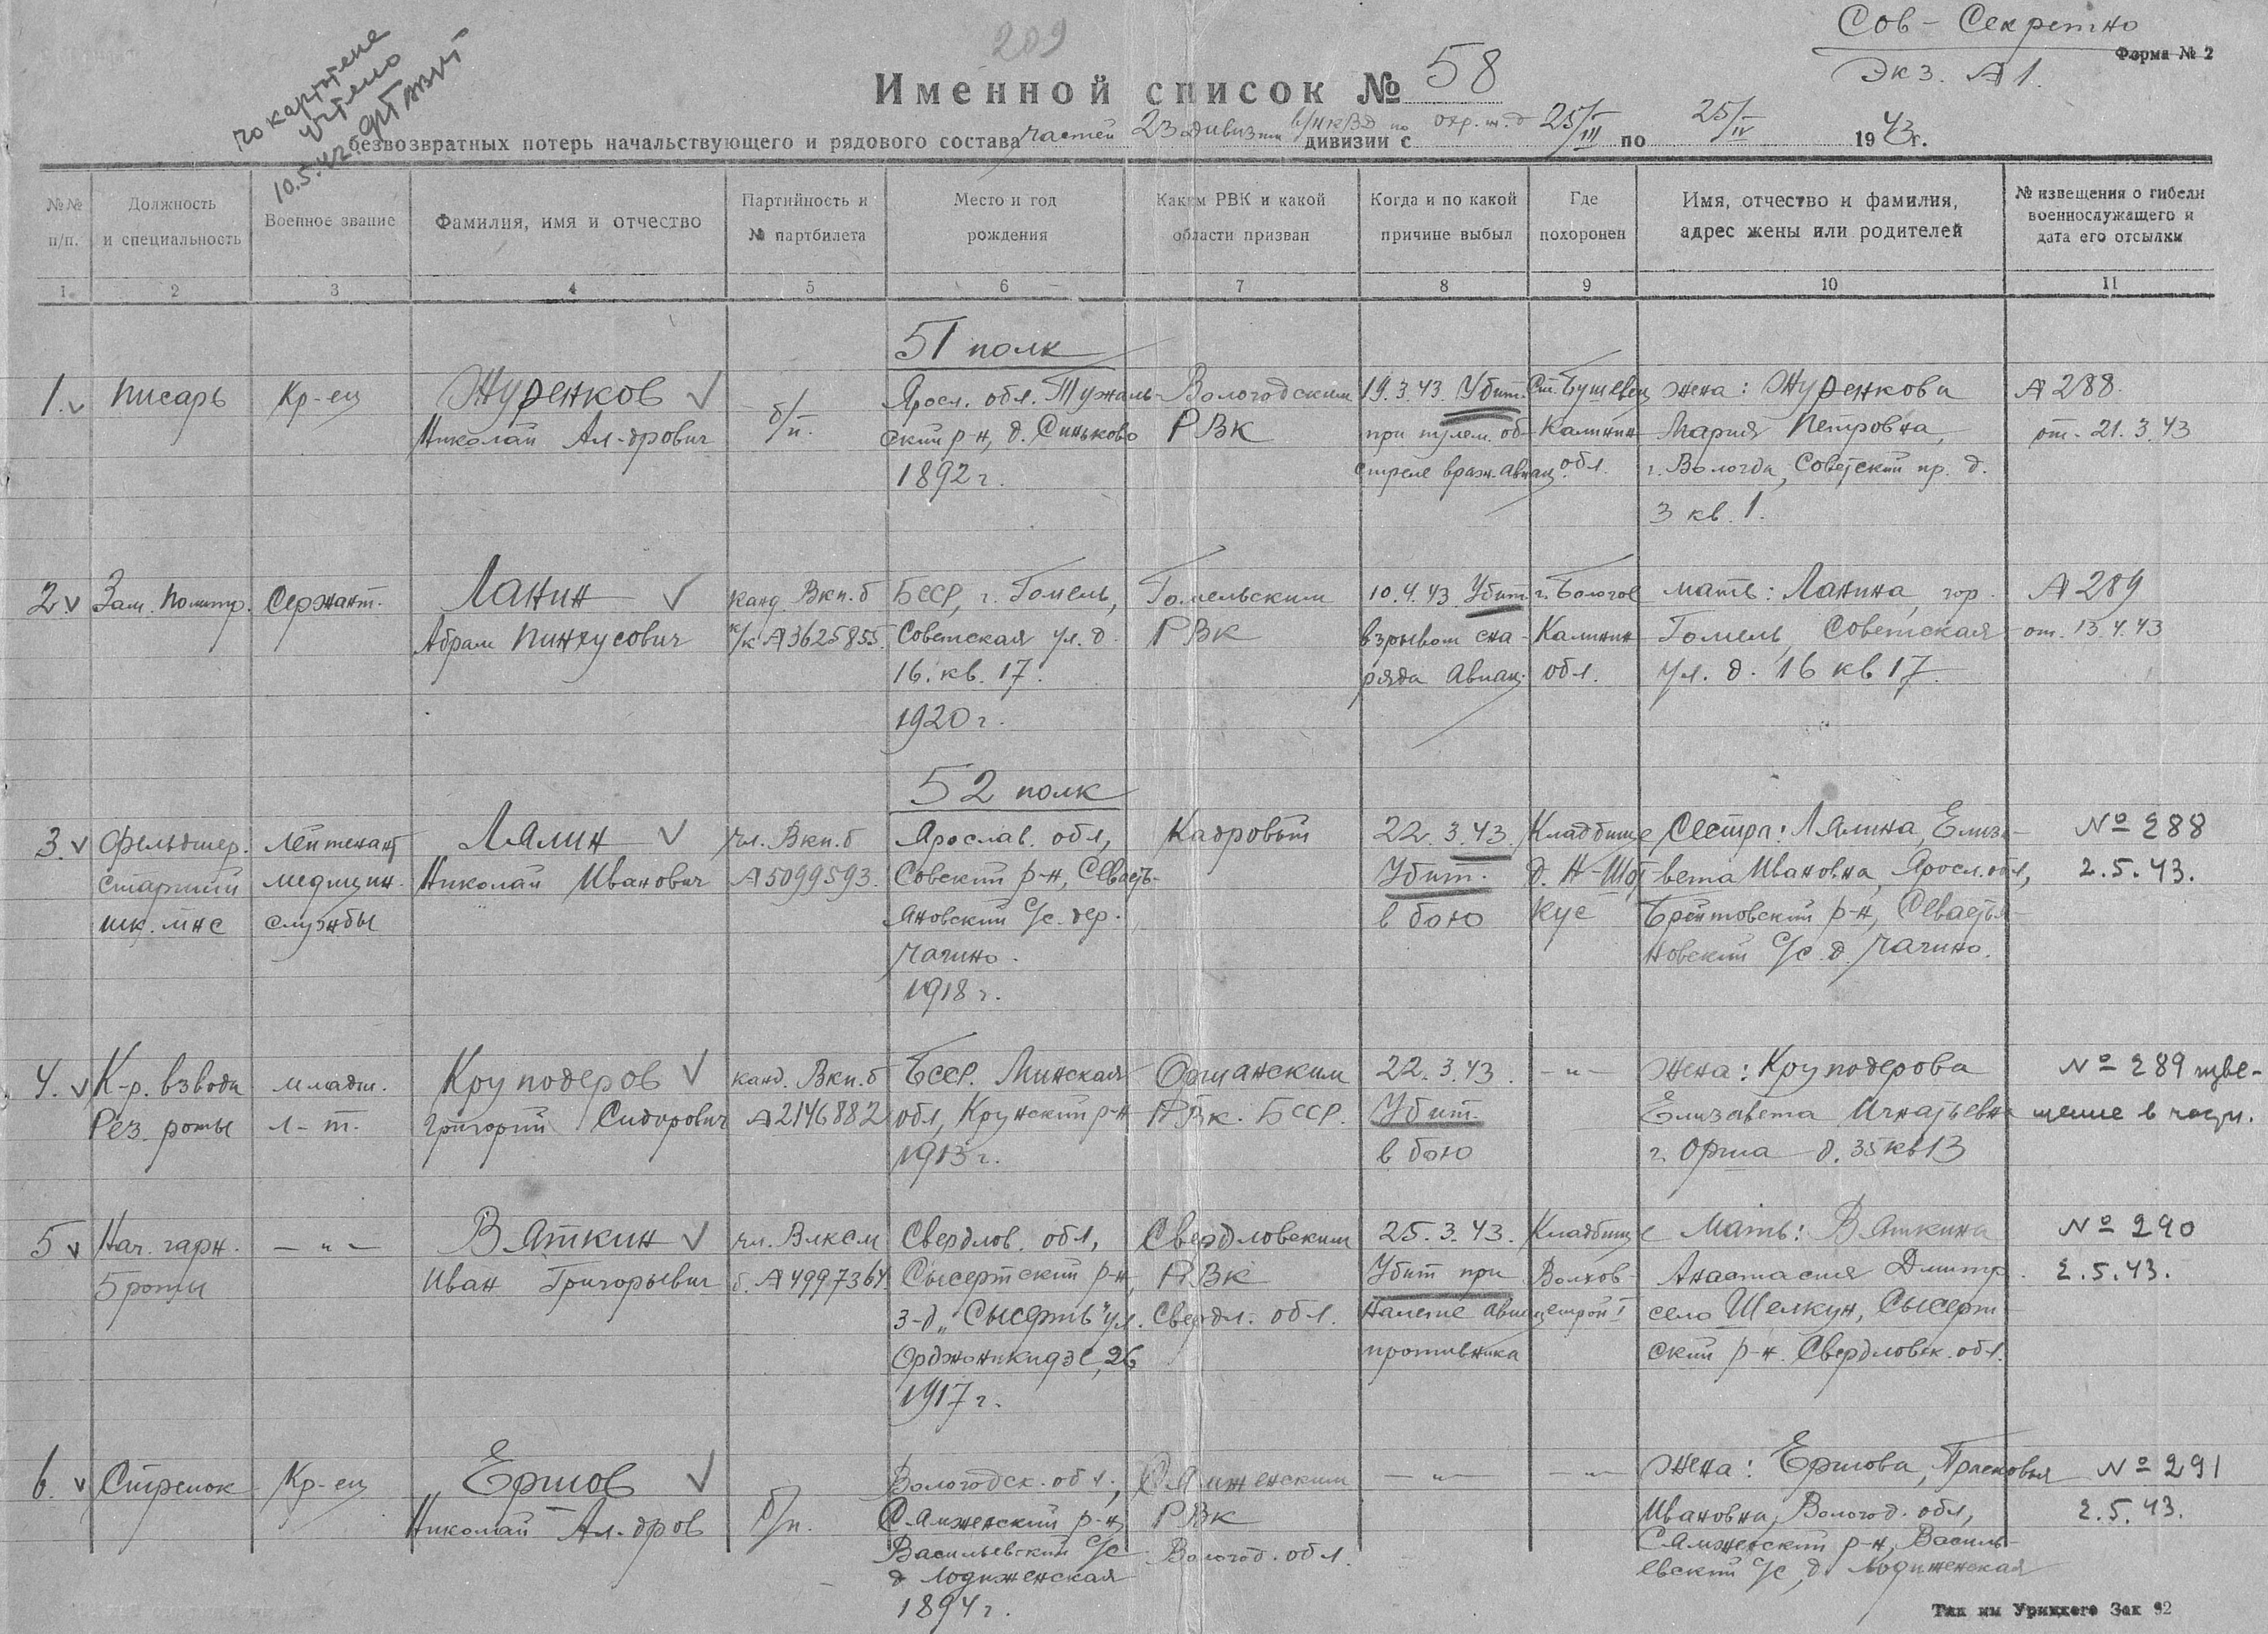 209
Сов-Секретно
Форма № 2
Экз. №1.
по картотеке
учтено
10.5.42.
Именной список № 58
безвозвратных потерь начальствующего и рядового состава частей 23 дивизии в/НКВД по охр. ж. д дивизии с 25/III по 25/IV 1943г.
№№ п/п.
Должность и специальность
Военное звание
Фамилия, имя и отчество
Партийность и № партбилета
Место и год рождения
Каким РВК и какой области призван
Когда и по какой причине выбыл
Где похоронен
Имя, отчество и фамилия, адрес жены или родителей
№ извещения о гибели военнослужащего и дата его отсылки
1 2 3 4 5 6 7 8 9 10 11
51 полк
1. писарь Кр-ец Журенков Яросл. обл. Вологодским 19.3.43 Убит. Ст. Бушевец жена: Журенкова № 288.
Николай Ал-дрович б/п. ский р-н, д. Синьково РВК при пулем. об- Калинин Мария Петровна, от. 21.3.43
1892 г. стреле враж. авиац. обл. г. Вологда, Советский пр. д.
3 кв. 1.
2 Зам. политр. Сержант. Ланин канд. Вкп.б БССР, г. Гомель, Гомельским 10.4.43 Убит г. Бологое мать: Ланина, гор. № 289
Абрам Пинхусович к/к №3625855. Советская ул. д. РВК взрывом сна- Калинин Гомель, Советская от. 13.4.43
16. кв. 17. ряда авиац. обл. ул. д. 16 кв 17.
1920 г.
52 полк
3. фельдшер. лейтенант Лялин чл. Вкп.б Ярослав. обл, Кадровый 22.3.43 Кладбище Сестра: Лялина, Елиза- № 288
старший медицин. Николай Иванович №5099593. Совский р-н, Севасть- Убит. д. Н-Шот вета Ивановна, Яросл. обл, 2.5.43.
шк. мнс службы яновский с/с. дер. в бою кус Брейтовский р-н, Севастья-
Чагино. новский с/с д. Чагино.
1918 г.
4. К-р. взвода младш. Круподеров канд. Вкп.б БССР. Минская Оршанским 22.3.43 -"- жена: Круподерова № 289 изве-
Рез. роты л-т. Григорий Сидорович №2146882 обл, Крунский р-н РВК. БССР. Убит. Елизавета Игнатьевна щение в части.
1913 г. в бою г. Орша д. 35 кв 13
5 Нач. гарн. -"- Вяткин чл. Влксм Свердлов. обл, Свердловским 25.3.43. Кладбище Мать: Вяткина № 290
5 роты Иван Григорьевич б. №4997364. Сысертский р-н, РВК Убит при Волхов- Анастасия Дмитр. 2.5.43.
з-д "Сысерть" ул. Свердл. обл. налете авиац строй I село Щелкун, Сысерт-
Орджоникидзе, 26 противника ский р-н. Свердловск. обл.
1917 г.
6. Стрелок Кр-ец Ершов Вологодск. обл. Сямженским -"- -"- жена: Ершова, Прасковья № 291
Николай Ал-дров б/п. Сямженский р-н, РВК Ивановна, Вологод. обл, 2.5.43.
Васильевский с/с Вологод. обл. Сямженский р-н, Василь-
д Лодыженская евский с/с, д. Лодыженская
1894 г.
Тип им Урицкого Зак 92